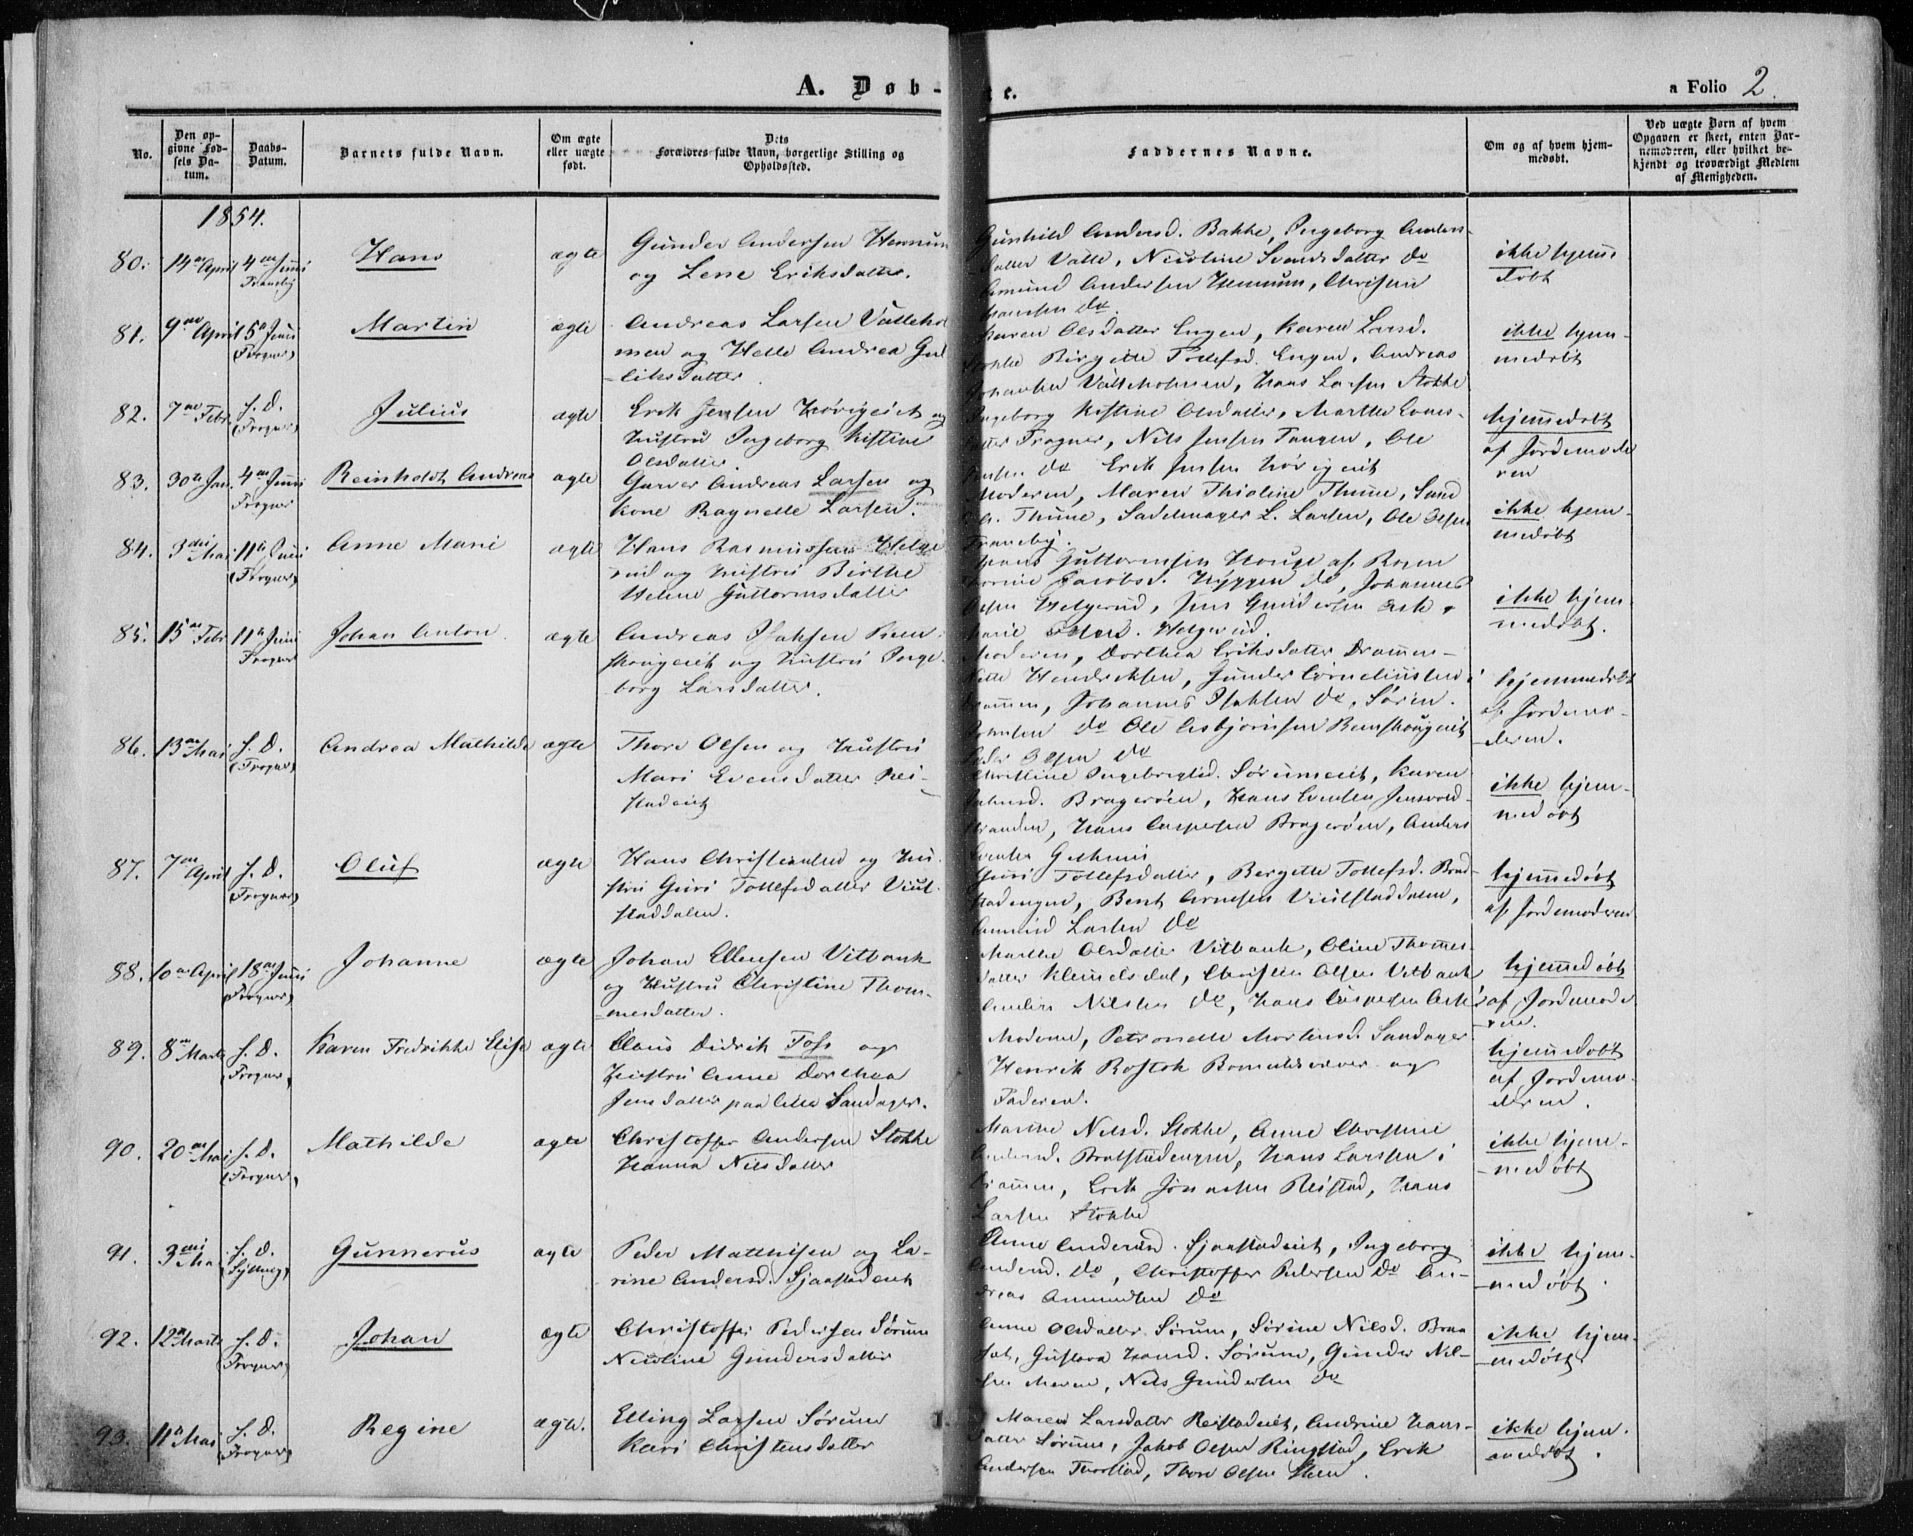 A. Døb-
te.
a Folio 2.
No.
Den op-
givne Fød-
sels Da-
tum.
Daabs-
Datum.
Barnets fulde Navn.
Om ægte
eller uægte
født.
Dets
Forældres fulde Navn, borgerlige Stilling og
Opholdssted.
Faddernes Navne.
Om og af hvem hjem-
medøbt.
Ved uægte Børn af hvem
Opgaven er skeet, enten Bar-
nemoderen, eller hvilket be-
kjendt og troværdigt Medlem
af Menigheden.
1854.
80. 14 April 4 Juni
Traneby
Hans
ægte
Gunder Andersen Hennum
og Lene Eriksdatter.
Gunhild Andersd. Bakke, Ingeborg Anders-
datter Valle, Nicoline Svendsdatter do
Amund Andersen Hennum, Christen
Hansen do
ikke hjemme
døbt
81. 9 April 5 Juni
(Frogner)
Martin
ægte
Andreas Larsen Vallehol
men og Helle Andrea Gul
liksdatter.
Karen Olsdatter Engen, Karen Larsd.
Stokke Birgitte Tollefsd. Engen, Andreas
Johansen Valleholmen, Hans Larsen Stokke
ikke hjem-
medøbt
82. 7 Febr. s. D.
(Frogner)
Julius
ægte
Erik Jensen og
Hustru Ingeborg Kistine
Olsdatter.
Ingeborg Kistine Olsdatter, Marthe
datter Frogner, Nils Jensen Tangen, Ole
Jensen do Erik Jensen
hjemmedøbt
af Jordemode
ren
83. 30 Jan. 4 Juni
Frogner
Reinholdt Andreas
ægte
Garver Andreas Larsen og
Kone Ragnelle Larsen.
Moderen, Maren Thioline Thune,
Thune, Sadelmager L. Larsen, Ole Olsen
Traneby.
ikke hjem-
medøbt
84. 3 Mai 11 Juni
(Frogner)
Anne Mari
ægte
Hans Rasmussen Helge
rud og Hustru Birthe
Helene Guttormsdatter
Hans Guttormsen Houge af
Jacobsd. Hyggen do, Johannes
Olsen Helgerud, Jens Gundersen Ask,
Marie Helgerud.
ikke hjem-
medøbt.
85. 15 Febr 11 Juni
Frogner
Johan Anton.
ægte
Andreas Isaksen
og Hustru Inge-
borg Larsdatter.
Moderen, Dorthea Eriksdatter Drammen-
Hendriksen, Gunder Corneliussen i
Drammen, Johannes Isaksen do, Søren
do Ole Asbjørnsen
Olsen do
hjemmedøbt
af Jordemo-
deren.
86. 13 Mai s. D.
(Frogner)
Andrea Mathilde
ægte
Thore Olsen og Hustru
Mari Evensdatter Rei-
stadeiet
Christine Ingebrigtsd. Sørumeiet, Karen
Bragerøen, Hans Evensen
Hans Caspersen Bragerøen, Anders
ikke hjem-
medøbt
87. 7 April s. D.
(Frogner)
Oluf
ægte
Hans Christiansen og Hu-
stru Guri Tollefsdatter Viul-
staddalen.
Guri Tollefsdatter, Bergitte Tollefsd.
Bent Arnesen Viulstaddalen,
Amund Larsen do
hjemmedøbt
af Jordemoderen
88. 10 April 18 Juni
(Frogner)
Johanne
ægte
Johan Ellensen Vitbank
og Hustru Christine Thom-
mesdatter.
Marthe Olsdatter Vitbank, Oline Thommes-
datter Klemelsdal, Christen Olsen Vitbank
Anders Nilsen do, Hans Caspersen Ask
hjemmedøbt
af Jordemode
ren.
89. 8 Marts s. D.
(Frogner)
Karen Fredrikke Elise
ægte
Claus Didrik Foss og
Hustru Anne Dorthea
Jensdatter paa Sandager.
Moderne, Petronelle Mortensd. Sandager
Henrik Rostok og
Faderen.
hjemmedøbt
af Jordemo-
deren.
90. 20 Mai s. D.
(Frogner)
Mathilde
ægte
Christoffer Andersen Stokke
Hanna Nilsdatter
Marthe Nilsd. Stokke, Anne Christine
Andersd. Hans Larsen i
Drammen, Erik Reistad, Hans
Larsen Stokke
ikke hjem-
medøbt
91. 3 Mai s. D.
(Sylling)
Gunnerus
ægte
Peder Matthisen og La-
rine Andersd. Sjaastadeiet
Anne Andersd. Sjaastadeiet, Ingeborg
Andersd. do, Christoffer Pedersen do An-
dreas Amundsen do
ikke hjem-
medøbt.
92. 12 Marts s. D.
(Frogner)
Johan
ægte
Christoffer Pedersen Sørum
Nicoline Gundersdatter
Anne Olsdatter Sørum, Sørine Nilsd.
Gustava Hansd. Sørum, Gunder Nil-
sen Moren, Nils Gundersen do
ikke hjem-
medøbt
93. 11 Mai s. D.
(Frogner)
Regine
ægte.
Elling Larsen Sørum
Kari Christensdatter
Maren Larsdatter Reistadeiet, Andrine Hans-
datter Sørum, Jakob Olsen Ringstad, Erik
Andersen Thorstad, Thore Olsen Steen.
ikke hjem-
medøbt.